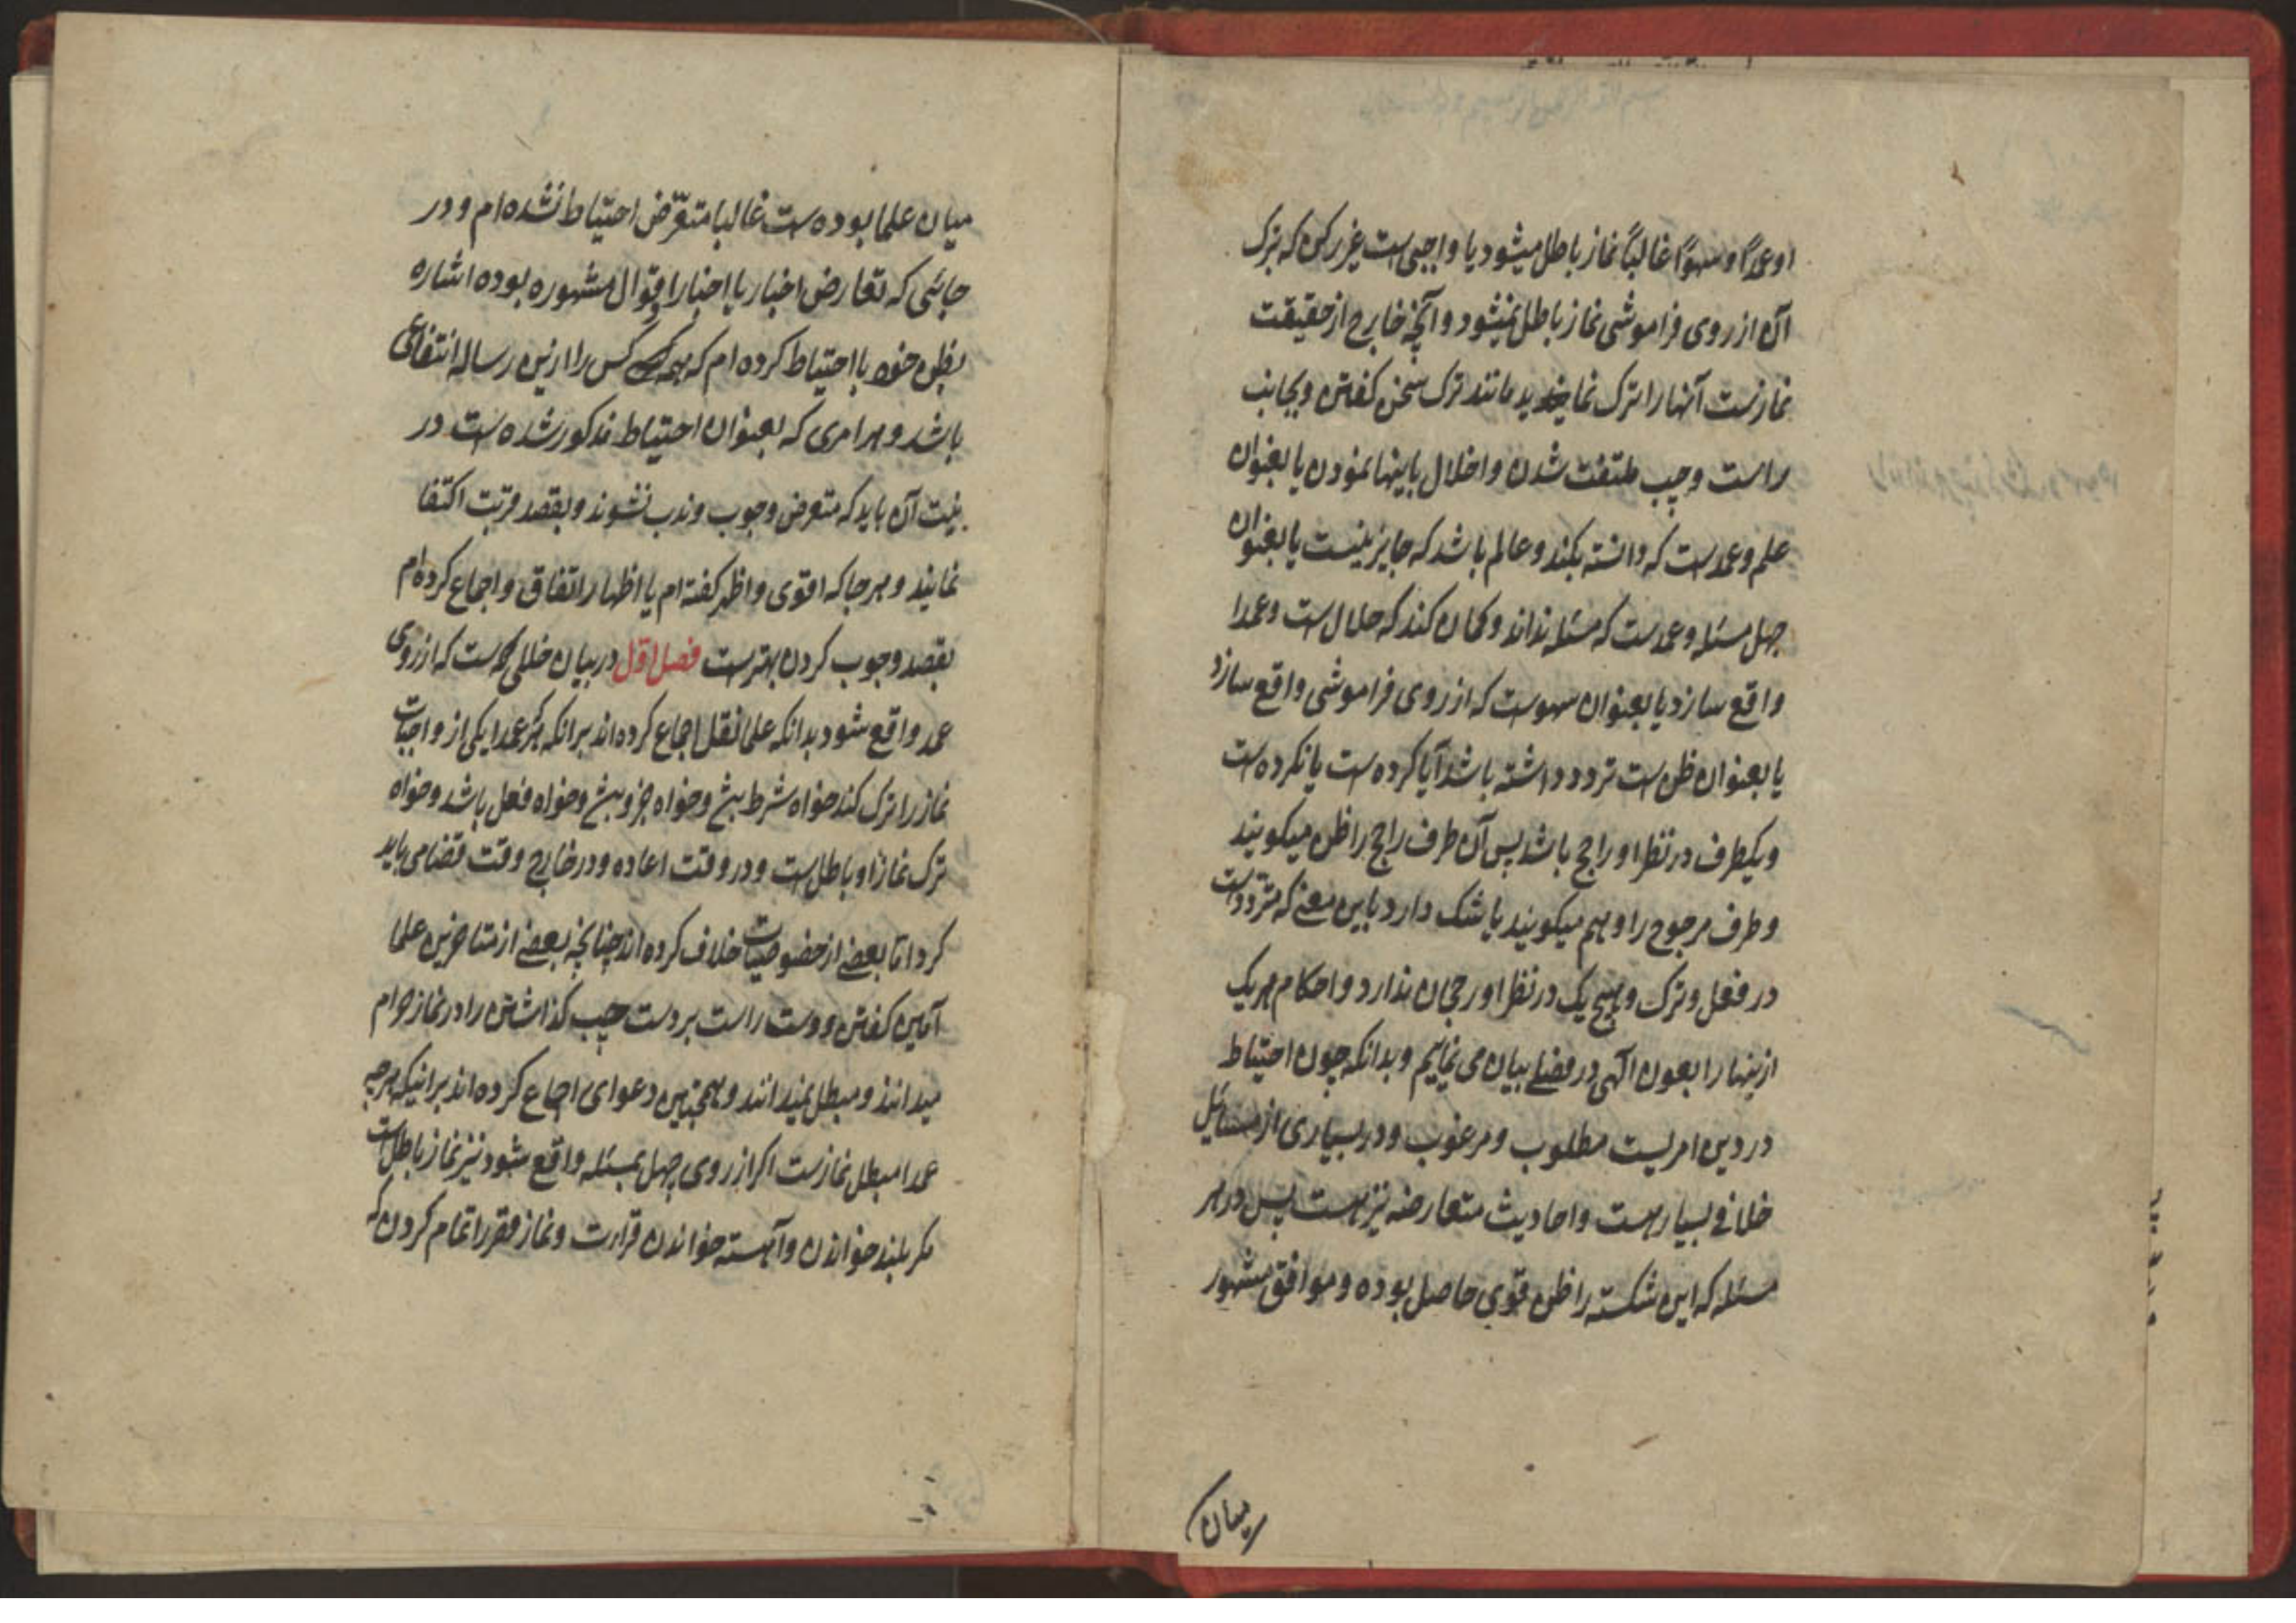 او عمداً و سهواً غالباً نماز باطل میشود یا واجبی است غیر رکن که بترک
آن از روی فراموشی نماز باطل نمیشود و آنچه خارج از حقیقت
نمازست آنها را ترک نماید مانند ترک سخن کفتن و بجانب
راست و چپ ملتفت شدن و اخلال باینها نمودن یا بعنوان
علم و عمدست که دانسته بکند و عالم باشد که جایز نیست یا بعنوان
جهل مسئله و عمدست که مسئله نداند و کمان کند که حلال است و عمدا
واقع سازد یا بعنوان سهوست که از روی فراموشی واقع سازد
یا بعنوان ظن است تردد داشته باشد آیا کرده است یا نکرده است
و یکطرف در نظر او راجح باشد پس آن طرف راجح را ظن میکویند
و طرف مرجوح را وهم میکویند یا شک دارد باین معنے که متردد است
در فعل و ترک و هیچ یک در نظر او رجحان ندارد و احکام هر یک
ازینها را بعون الهی در فصلے بیان می نماییم و بدانکه چون احتیاط
در دین امریست مطلوب و مرغوب و در بسیاری از مسائل
خلافے بسیار هست و احادیث متعارضه نیز هست پس در هر
مسئله که این شکسته را ظن قوی حاصل بوده و موافق مشهور
میان
میان علما بوده است غالبا متعرّض احتیاط نشده ام و در
جائی که تعارض اخبار یا اخبار و اقوال مشهوره بوده اشاره
بظن خود با احتیاط کرده ام که همه کس را ازین رساله انتفاعی
باشد و هر امری که بعنوان احتیاط مذکور شده است در
نیت آن باید که متعرض وجوب و ندب نشوند و بقصد قربت اکتفا
نمایند و هر جا که اقوی و اظهر کفته ام یا اظهار اتفاق و اجماع کرده ام
بقصد وجوب کردن بهترست فصل اول در بیان خللی که است که از روی
عمد واقع شود بدانکه علما نقل اجماع کرده اند برانکه هر که عمدا یکی از واجبات
نماز را ترک کند خواه شرط بش و خواه جزو بش و خواه فعل باشد و خواه
ترک نماز او باطل است و در وقت اعاده و در خارج وقت قضا می باید
کرد اما بعضے از خصوصیات خلاف کرده اند چنانچه بعضے از متاخرین علما
آمین کفتن و دست راست بر دست چپ کذاشتن را در نماز حرام
میدانند و مبطل نمیدانند و همچنین دعوای اجماع کرده اند برانیکه هر چه
عمدا مبطل نمازست اکر از روی جهل بمسئله واقع شود نیز نماز باطل است
مکر بلند خواندن و آهسته خواندن قراءت و نماز قصر را تمام کردن که